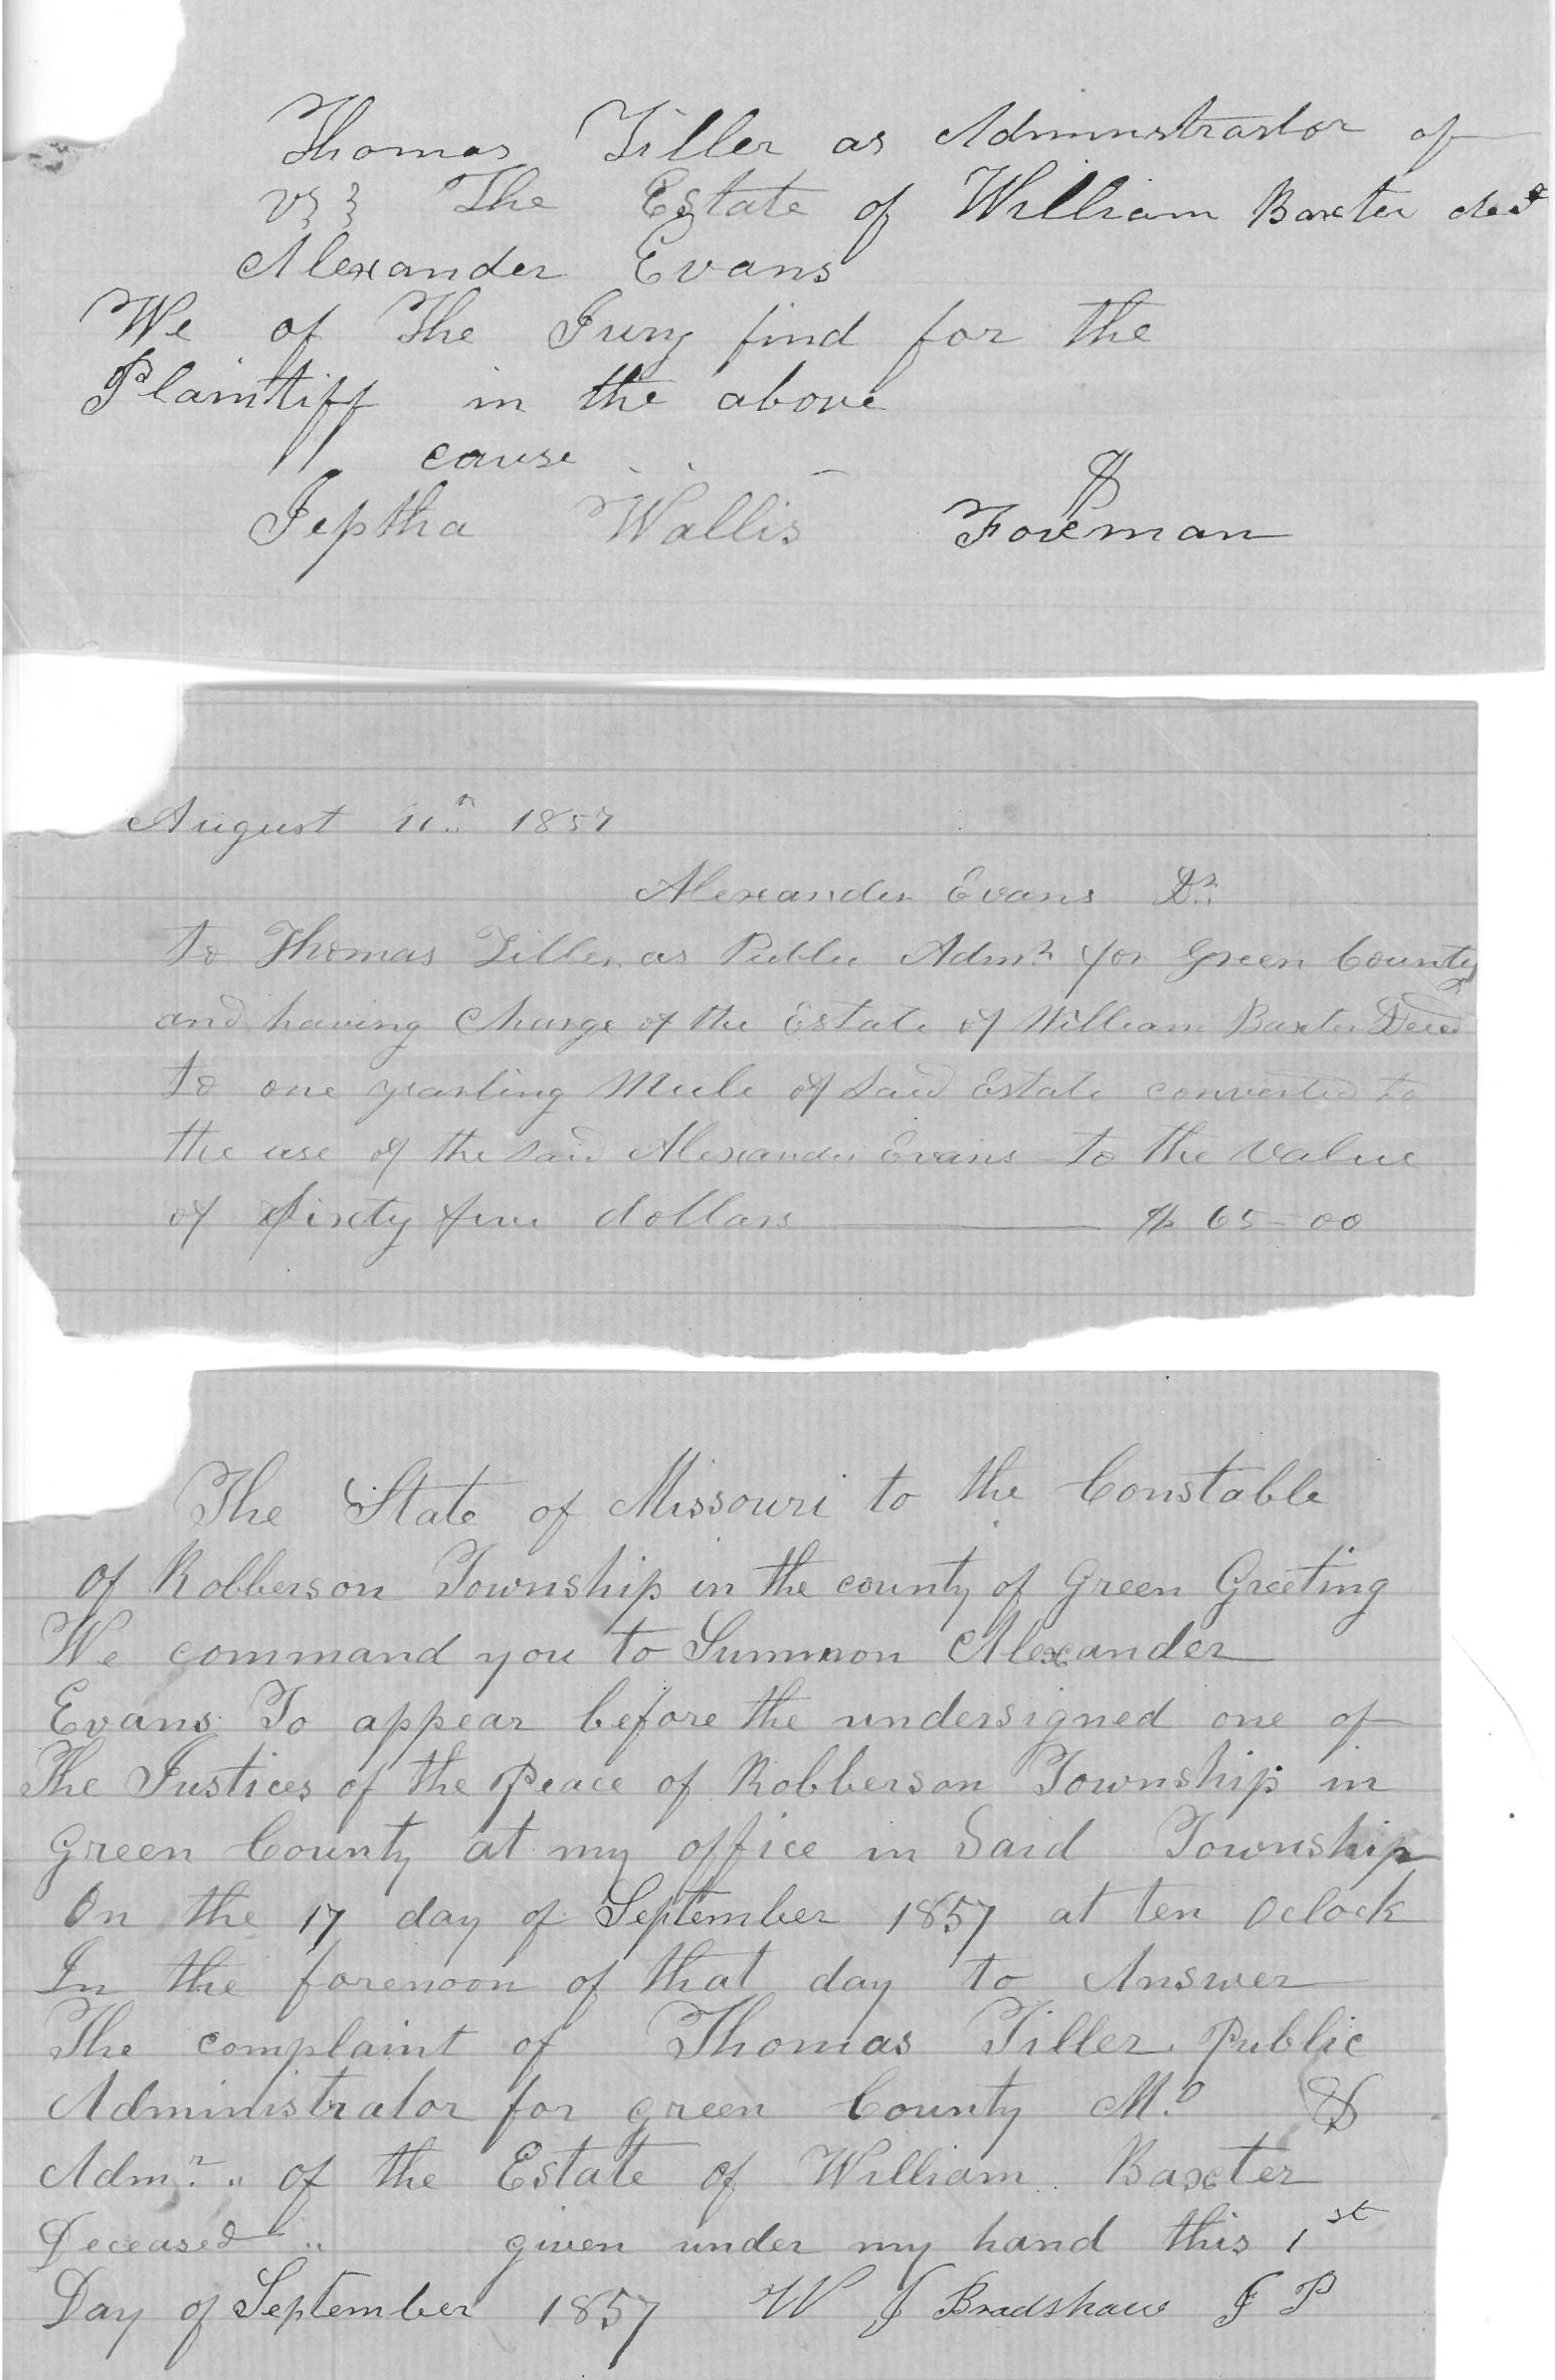 Thomas Tiller as Admınstrastor of
vs } The Estate of William Baxter decd
Alexander Evans
We of The Jury find for the
Plaintiff in the above
cause
Jeptha Wallis Foreman
August 11th 1857
Alexander Evans Dr.
to Thomas Tiller as Public Admr for Green County
and having Charge of the Estate of William Baxter Decd
to one yearling Mule of Said Estate converted to
the use of the said Alexander Evans to the value
of Sixty five dollars $ 65-00
The State of Missouri to the Constable
of Robberson Township in the county of Green Greeting
We command you to Summon Alexander
Evans To appear before the undersigned one of
The Justices of the Peace of Robberson Township in
Green County at my office in Said Township
On the 17 day of September 1857 at ten Oclock
In the forenoon of that day to Answer
The complaint of Thomas Tiller Public
Administrator for green County Mo &
Admr. of the Estate of William Baxter
Deceased given under my hand this 1st
Day of September 1857 W J Bradshaw J P